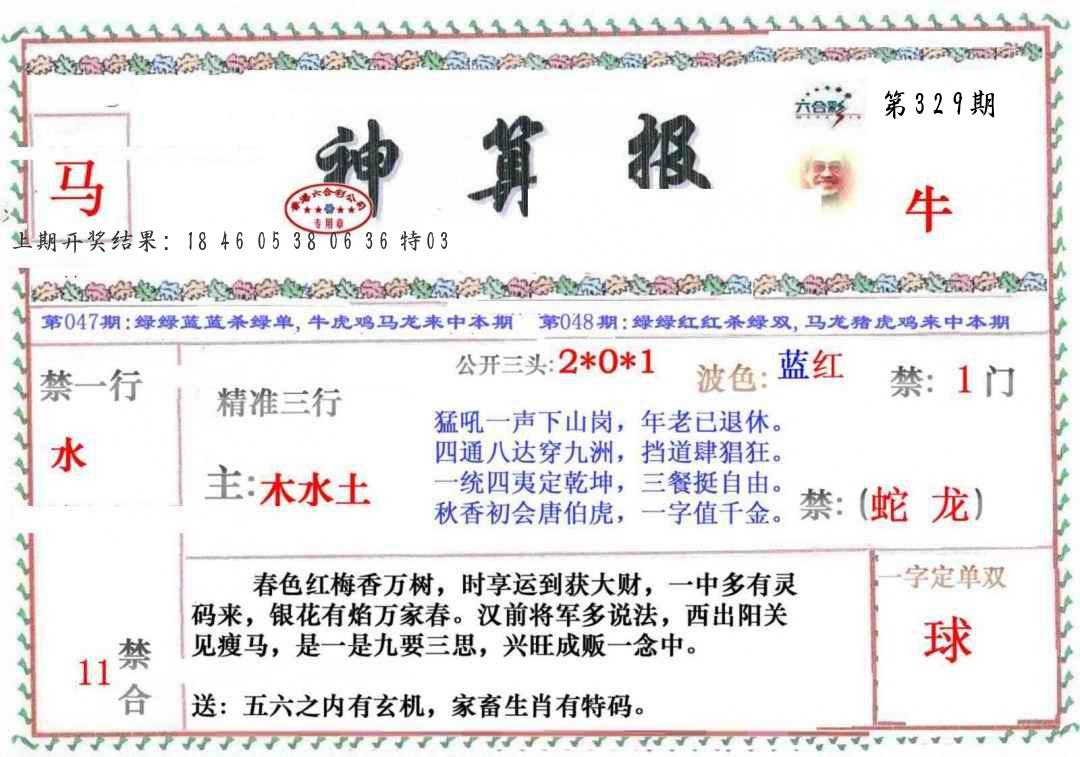 六合彩
第329期
神算报
马
香港六合彩公司
专用章
牛
上期开奖结果: 18 46 05 38 06 36 特03
第047期:绿绿蓝蓝杀绿单,牛虎鸡马龙来中本期
第048期:绿绿红红杀绿双,马龙猪虎鸡来中本期
禁一行
水
精准三行
主:木水土
公开三头:2*0*1
波色:蓝红
禁: 1门
猛吼一声下山岗，年老已退休。
四通八达穿九洲，挡道肆猖狂。
一统四夷定乾坤，三餐挺自由。
秋香初会唐伯虎，一字值千金。
禁:(蛇 龙)
春色红梅香万树，时享运到获大财，一中多有灵
码来，银花有焰万家春。汉前将军多说法，西出阳关
见瘦马，是一是九要三思，兴旺成贩一念中。
送：五六之内有玄机，家畜生肖有特码。
一字定单双
球
11
禁合